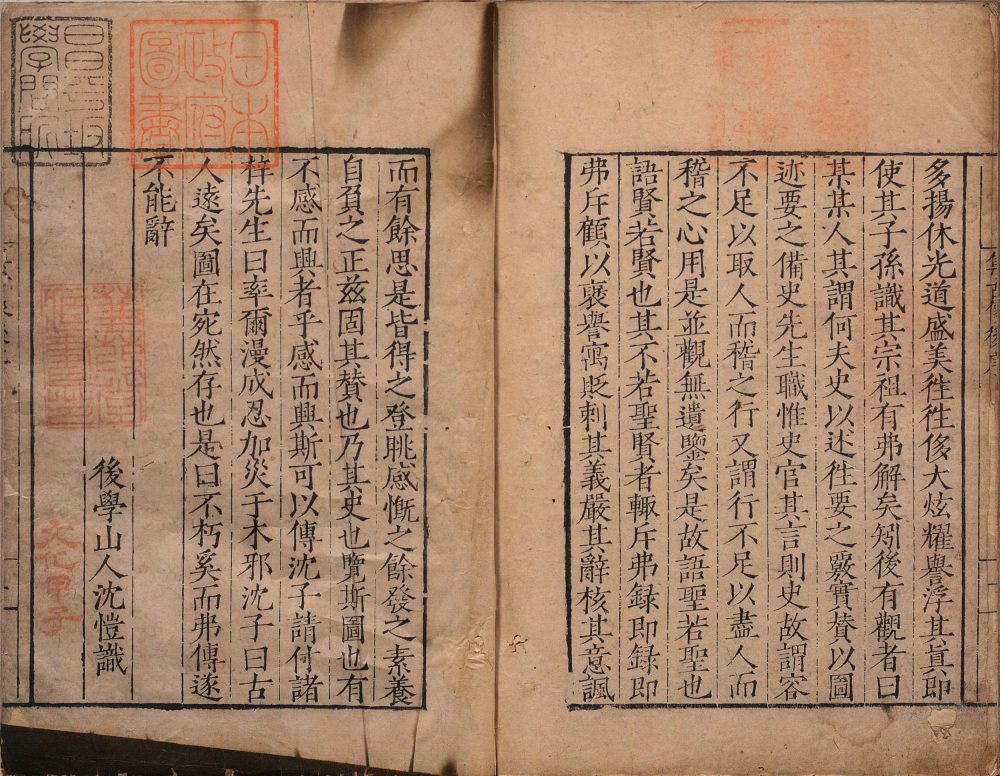 多揚休光道盛美徃徃侈大炫耀譽浮其眞即
使其子孫識其宗祖有弗解矣矧後有觀者曰
某某人其謂何夫史以述徃要之覈實賛以圖
迹要之備史先生職惟史官其言則史故謂容
不足以取人而稽之行又謂行不足以盡人而
稽之心用是並觀無遺鑒矣是故語聖若聖也
語賢若賢也其不若聖賢者輙斥弗録即録即
弗斥顧以褒譽寓貶刺其義嚴其辭核其意諷
而有餘思是皆得之登眺感慨之餘發之素養
自負之正兹固其賛也乃其史也覽斯圖也有
不感而興者乎感而興斯可以傳沈子請付諸
梓先生曰率爾漫成忍加災于木邪沈子曰古
人遠矣圖在宛然存也是曰不朽奚而弗傳遂
不能辭
後學山人沈愷識
昌平坂
學問所
日本
政府
圖書
文化甲子